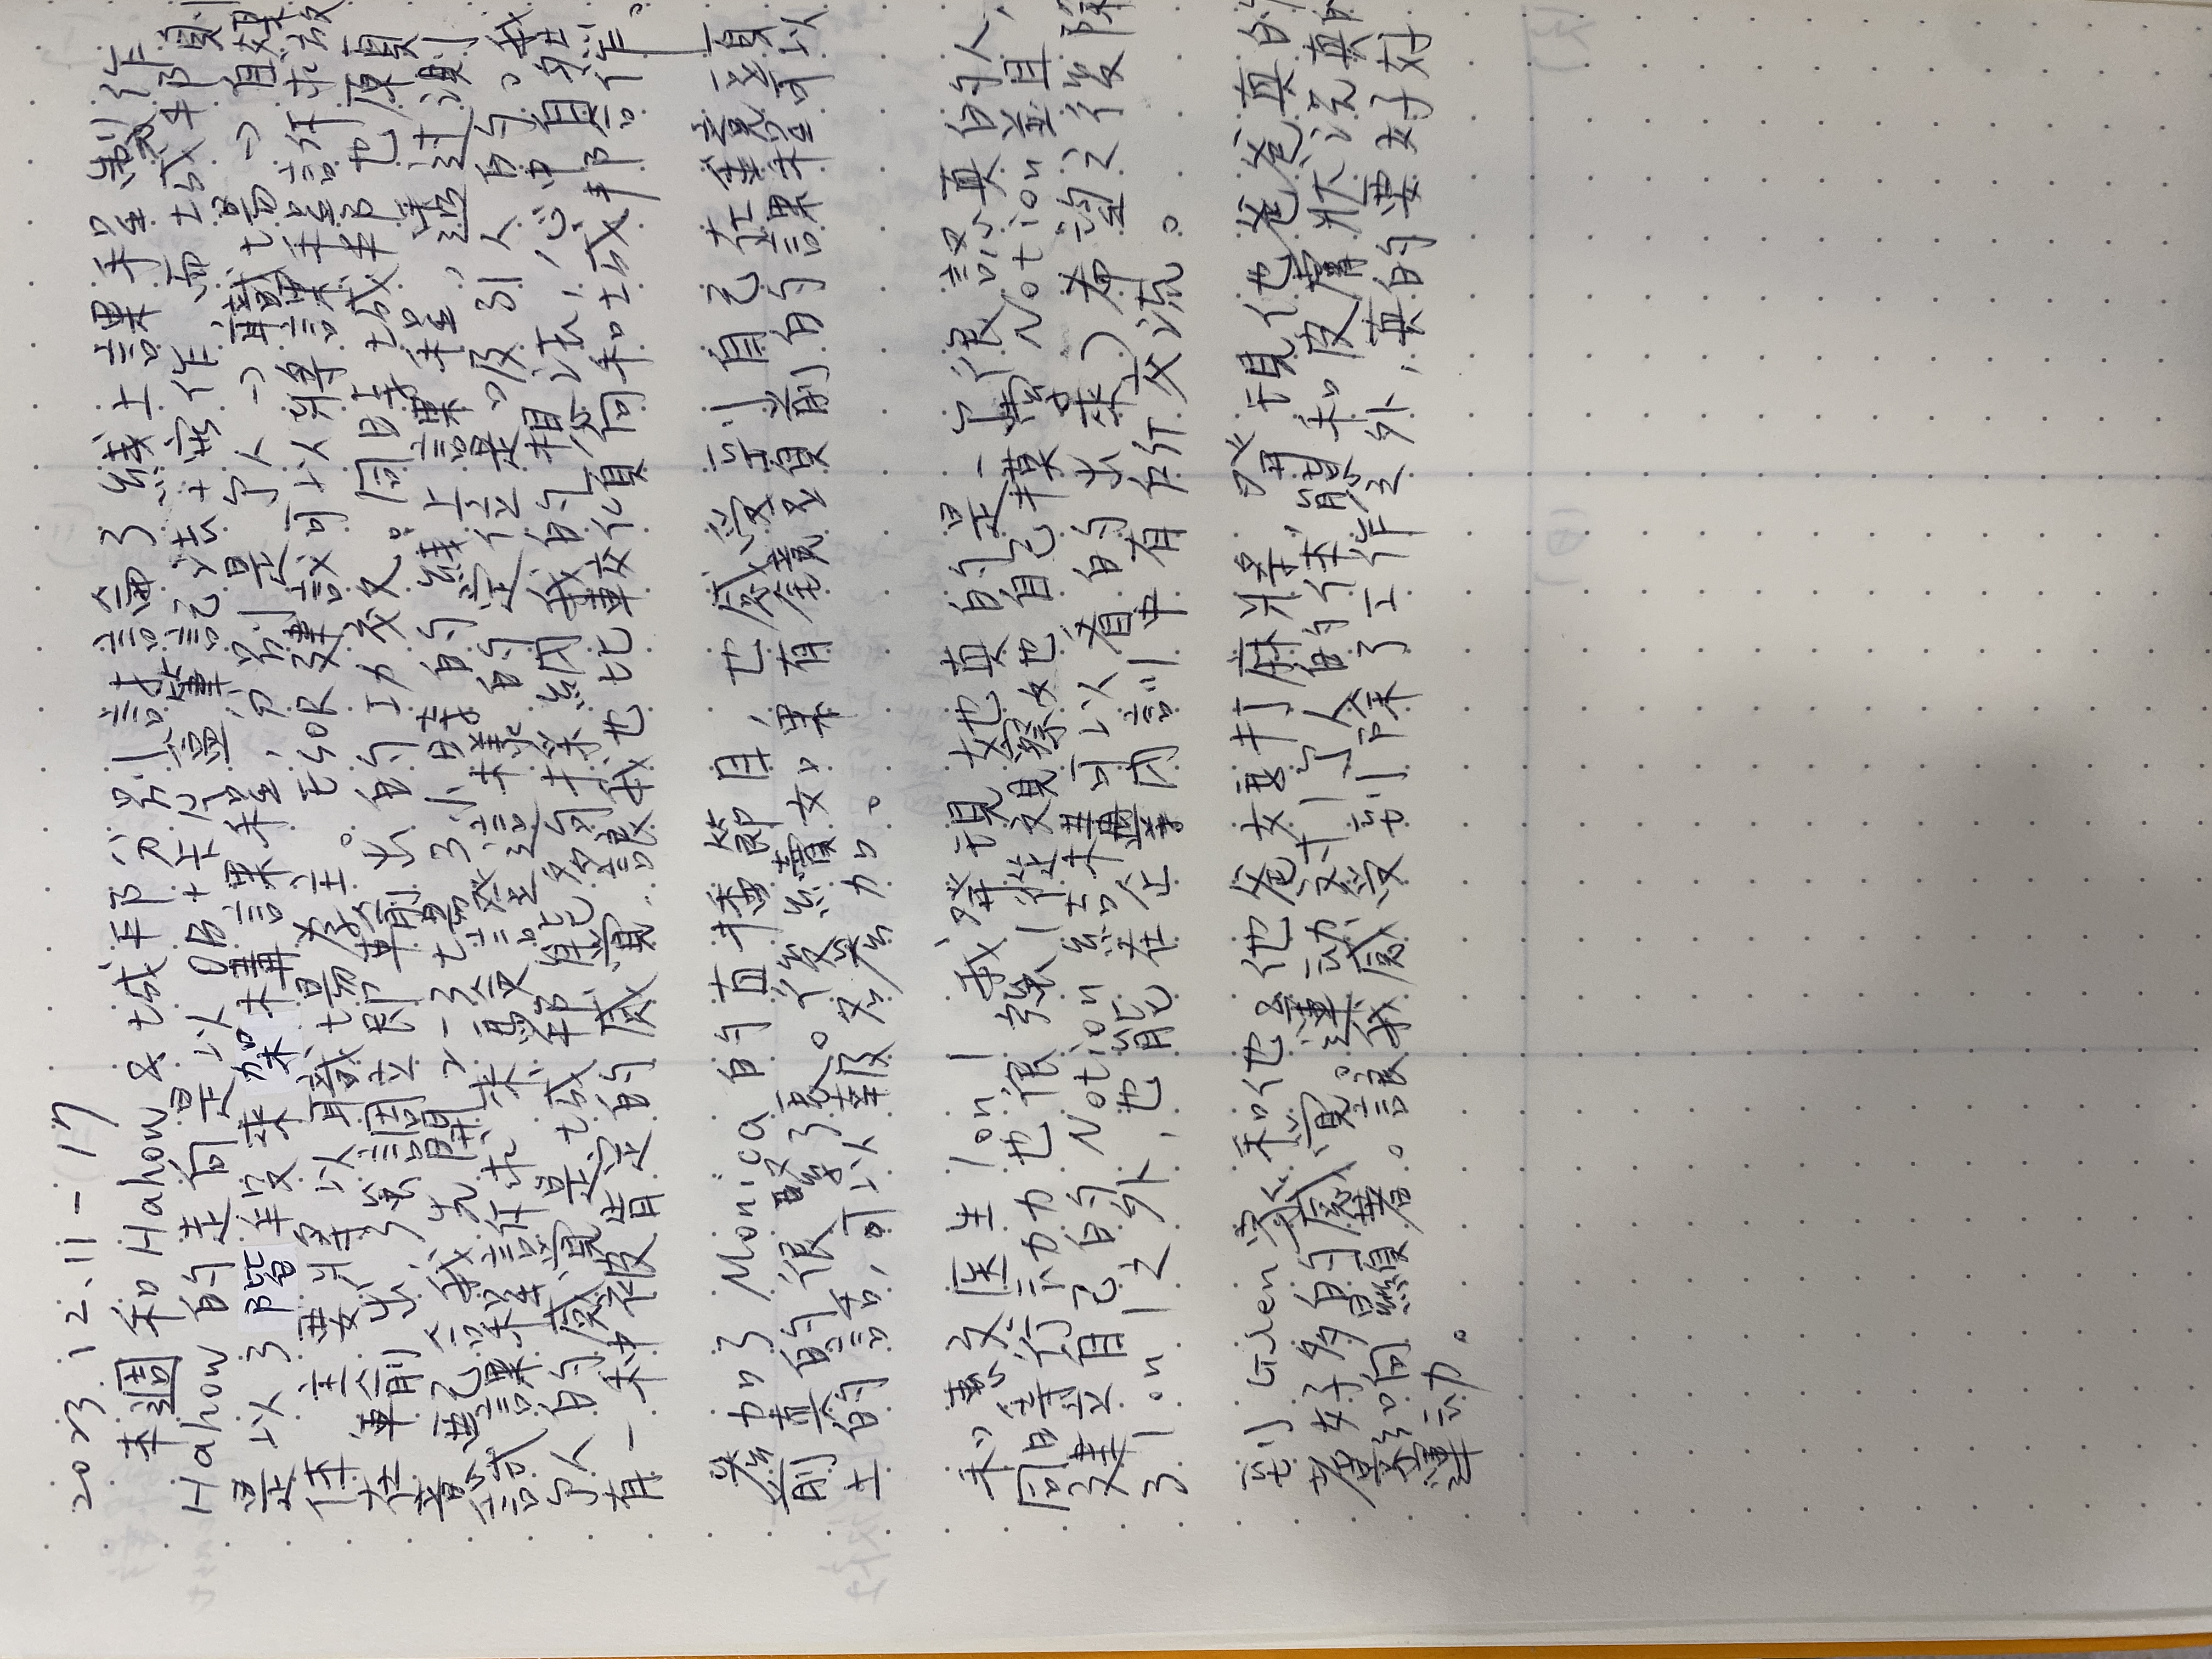 2023.12.11-17
本週和Hahow & 城邦分別討論了線上課程製作
Hahow 的走向是以OB+卡片盒筆記法+实作,而城邦則
是以3階段來架構課程,分別是个人→職場→自媒
体,主要將以職場為主。ESOR建議可以將課程訴求放
在輸出,強調立即輸出的功效。同時城邦也願
意配合我先開2-3場3小時的線上課程,透过測
試課程訴求來驗證這樣的定位是吸引人的。我
个人的感覚是城邦能夠採納我的想法,心中自然
有一种被肯定的感覚,讓我也比較傾向和城邦合作。
參加了Monica的直播節目,也感受到自己在鏡頭
前真的很緊張。後續如果有鏡頭前的課程可以
上的話,可以報名參加。
和惠文医生1on1 我發現她真的是一个很認真的人,
同時行动力也很強(從观察她自己摸索Notion並且
建立自己的Notion結構可以看的出來)希望之後除
了1on1之外,也能在企業內訓中有所交流。
到Glen家和他&他爸媽打麻將,發現他爸爸真的
老好多的感覚。運动对1个人的体態和皮膚狀況真的
影响顯著。讓我感受到除了工作之外,真的要好好
運动。